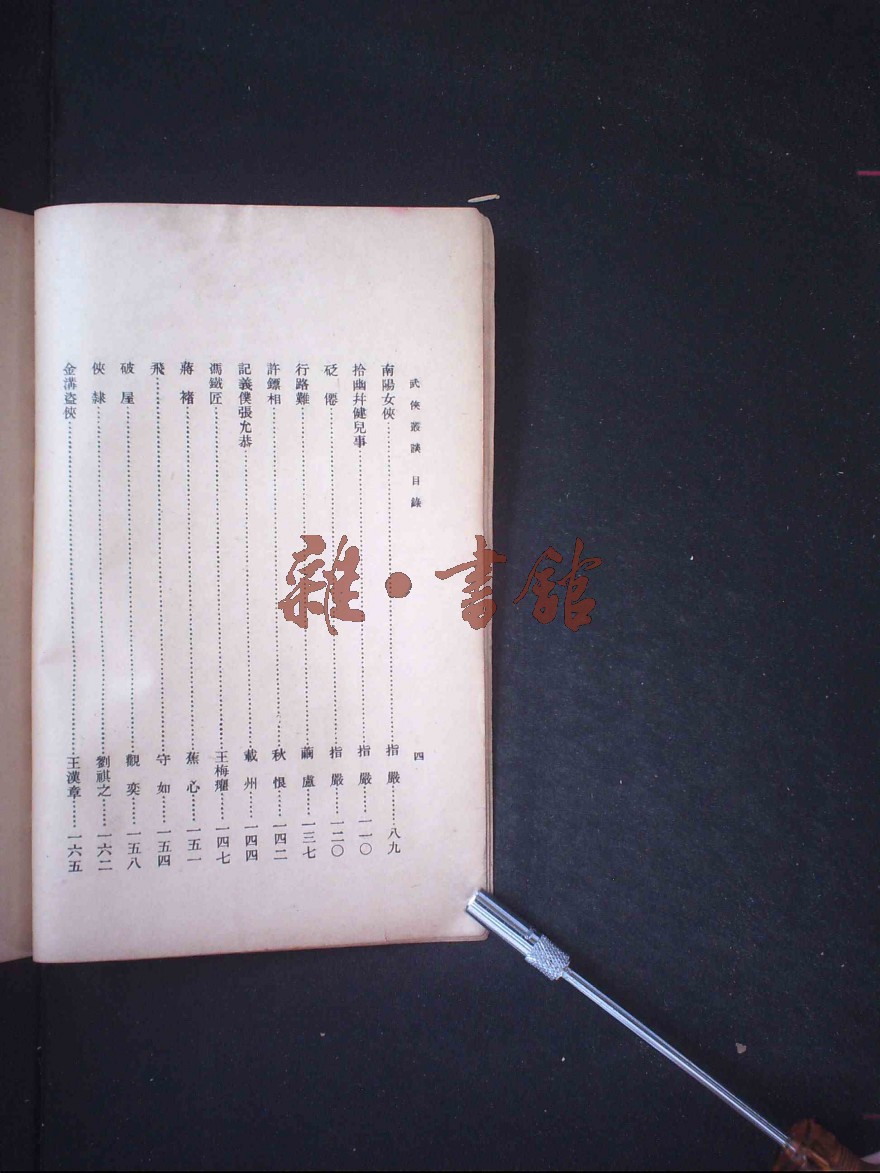 武俠叢談 目錄 四
南陽女俠……指嚴……八九
拾幽幷健兒事……指嚴……一一〇
砭僊……指嚴……一二〇
行路難……繭廬……一三七
許鏢相……秋恨……一四二
記義僕張允恭……載州……一四四
馮鐵匠……王梅癯……一四七
蔣褚……蕉心……一五一
飛……守如……一五四
破屋……觀奕……一五八
俠隸……劉祺之……一六二
金溝盜俠……王漢章……一六五
雜·書館